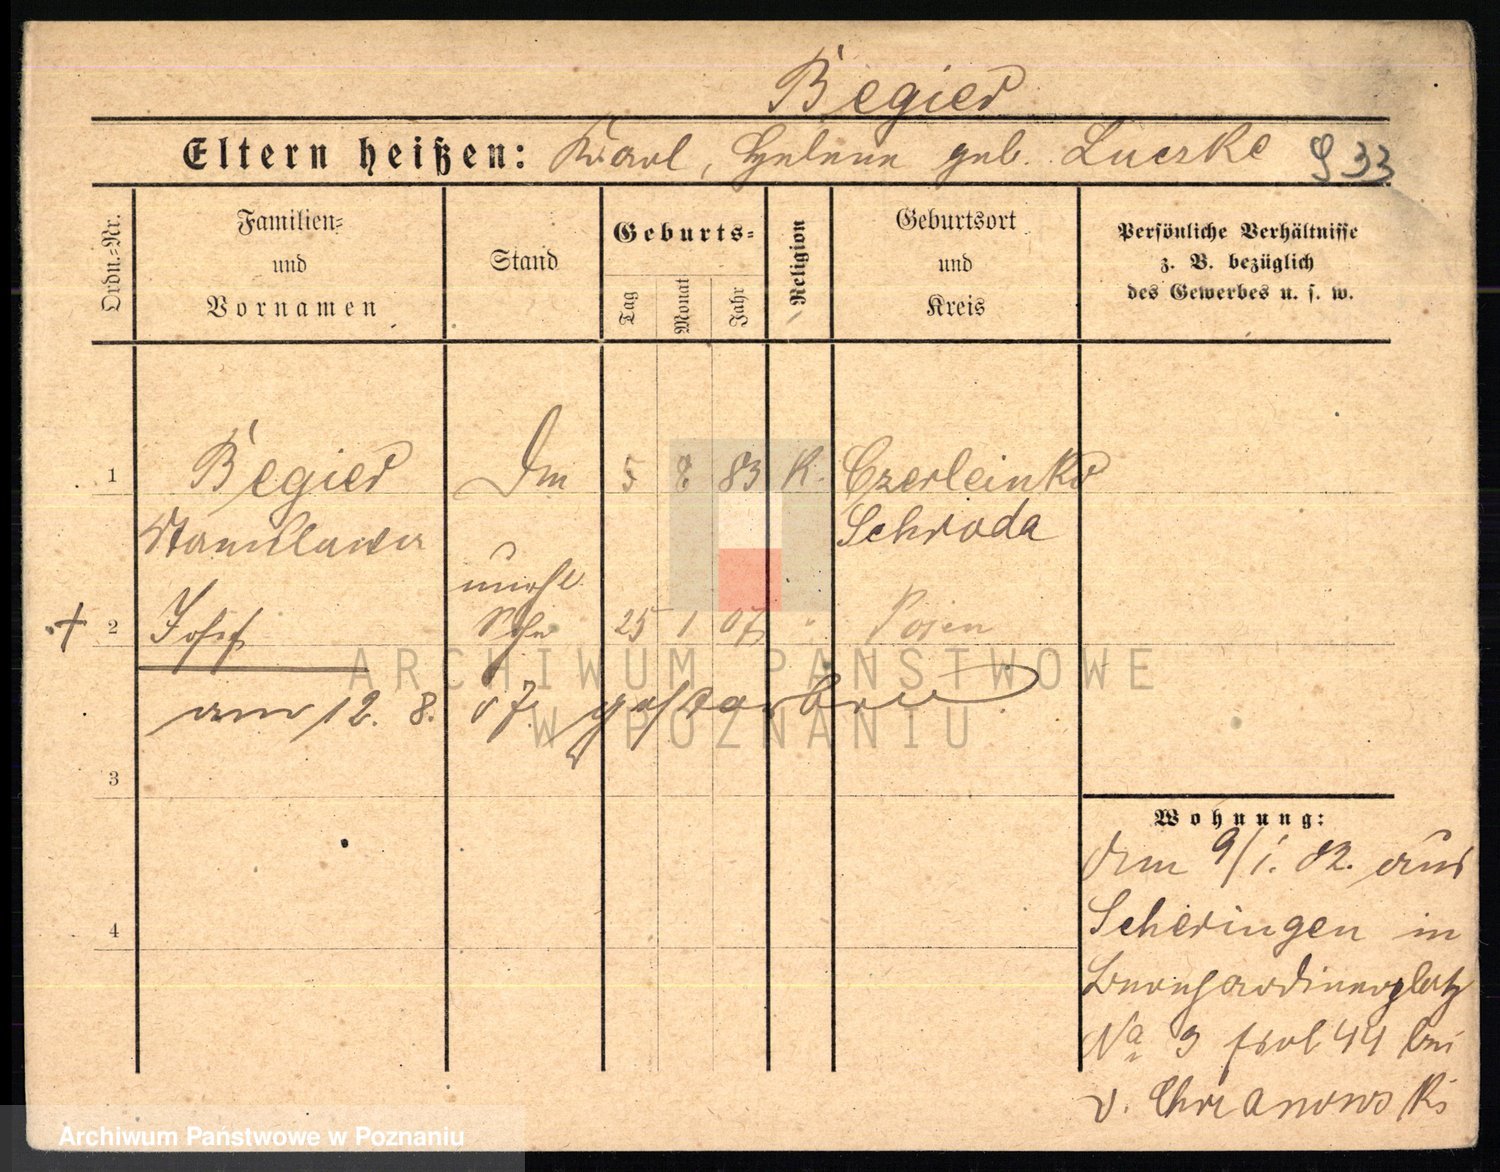 Begier
Eltern heißen: Karl, Helene geb. Lueske 933
Ordn.-Nr.
Familien-
und
Vornamen
Stand
Geburts-
Tag
Monat
Jahr
Religion
Geburtsort
und
Kreis
Persönliche Verhältnisse
z. B. bezüglich
des Gewerbes u. s. w.
1 Begier Dm 5 8 83 K. Czerleinko
Stanislawa Schroda
unehl
+ 2 Josef Sohn 25 1 07 " Posen
am 12. 8. 07. gestorben
3
4
Wohnung:
Am 9/1. 02. aus
Scheringen in
Bernhardinerplatz
No 3 fol 44 bei
v. Chrzanowski
ARCHIWUM PAŃSTWOWE
W POZNANIU
Archiwum Państwowe w Poznaniu